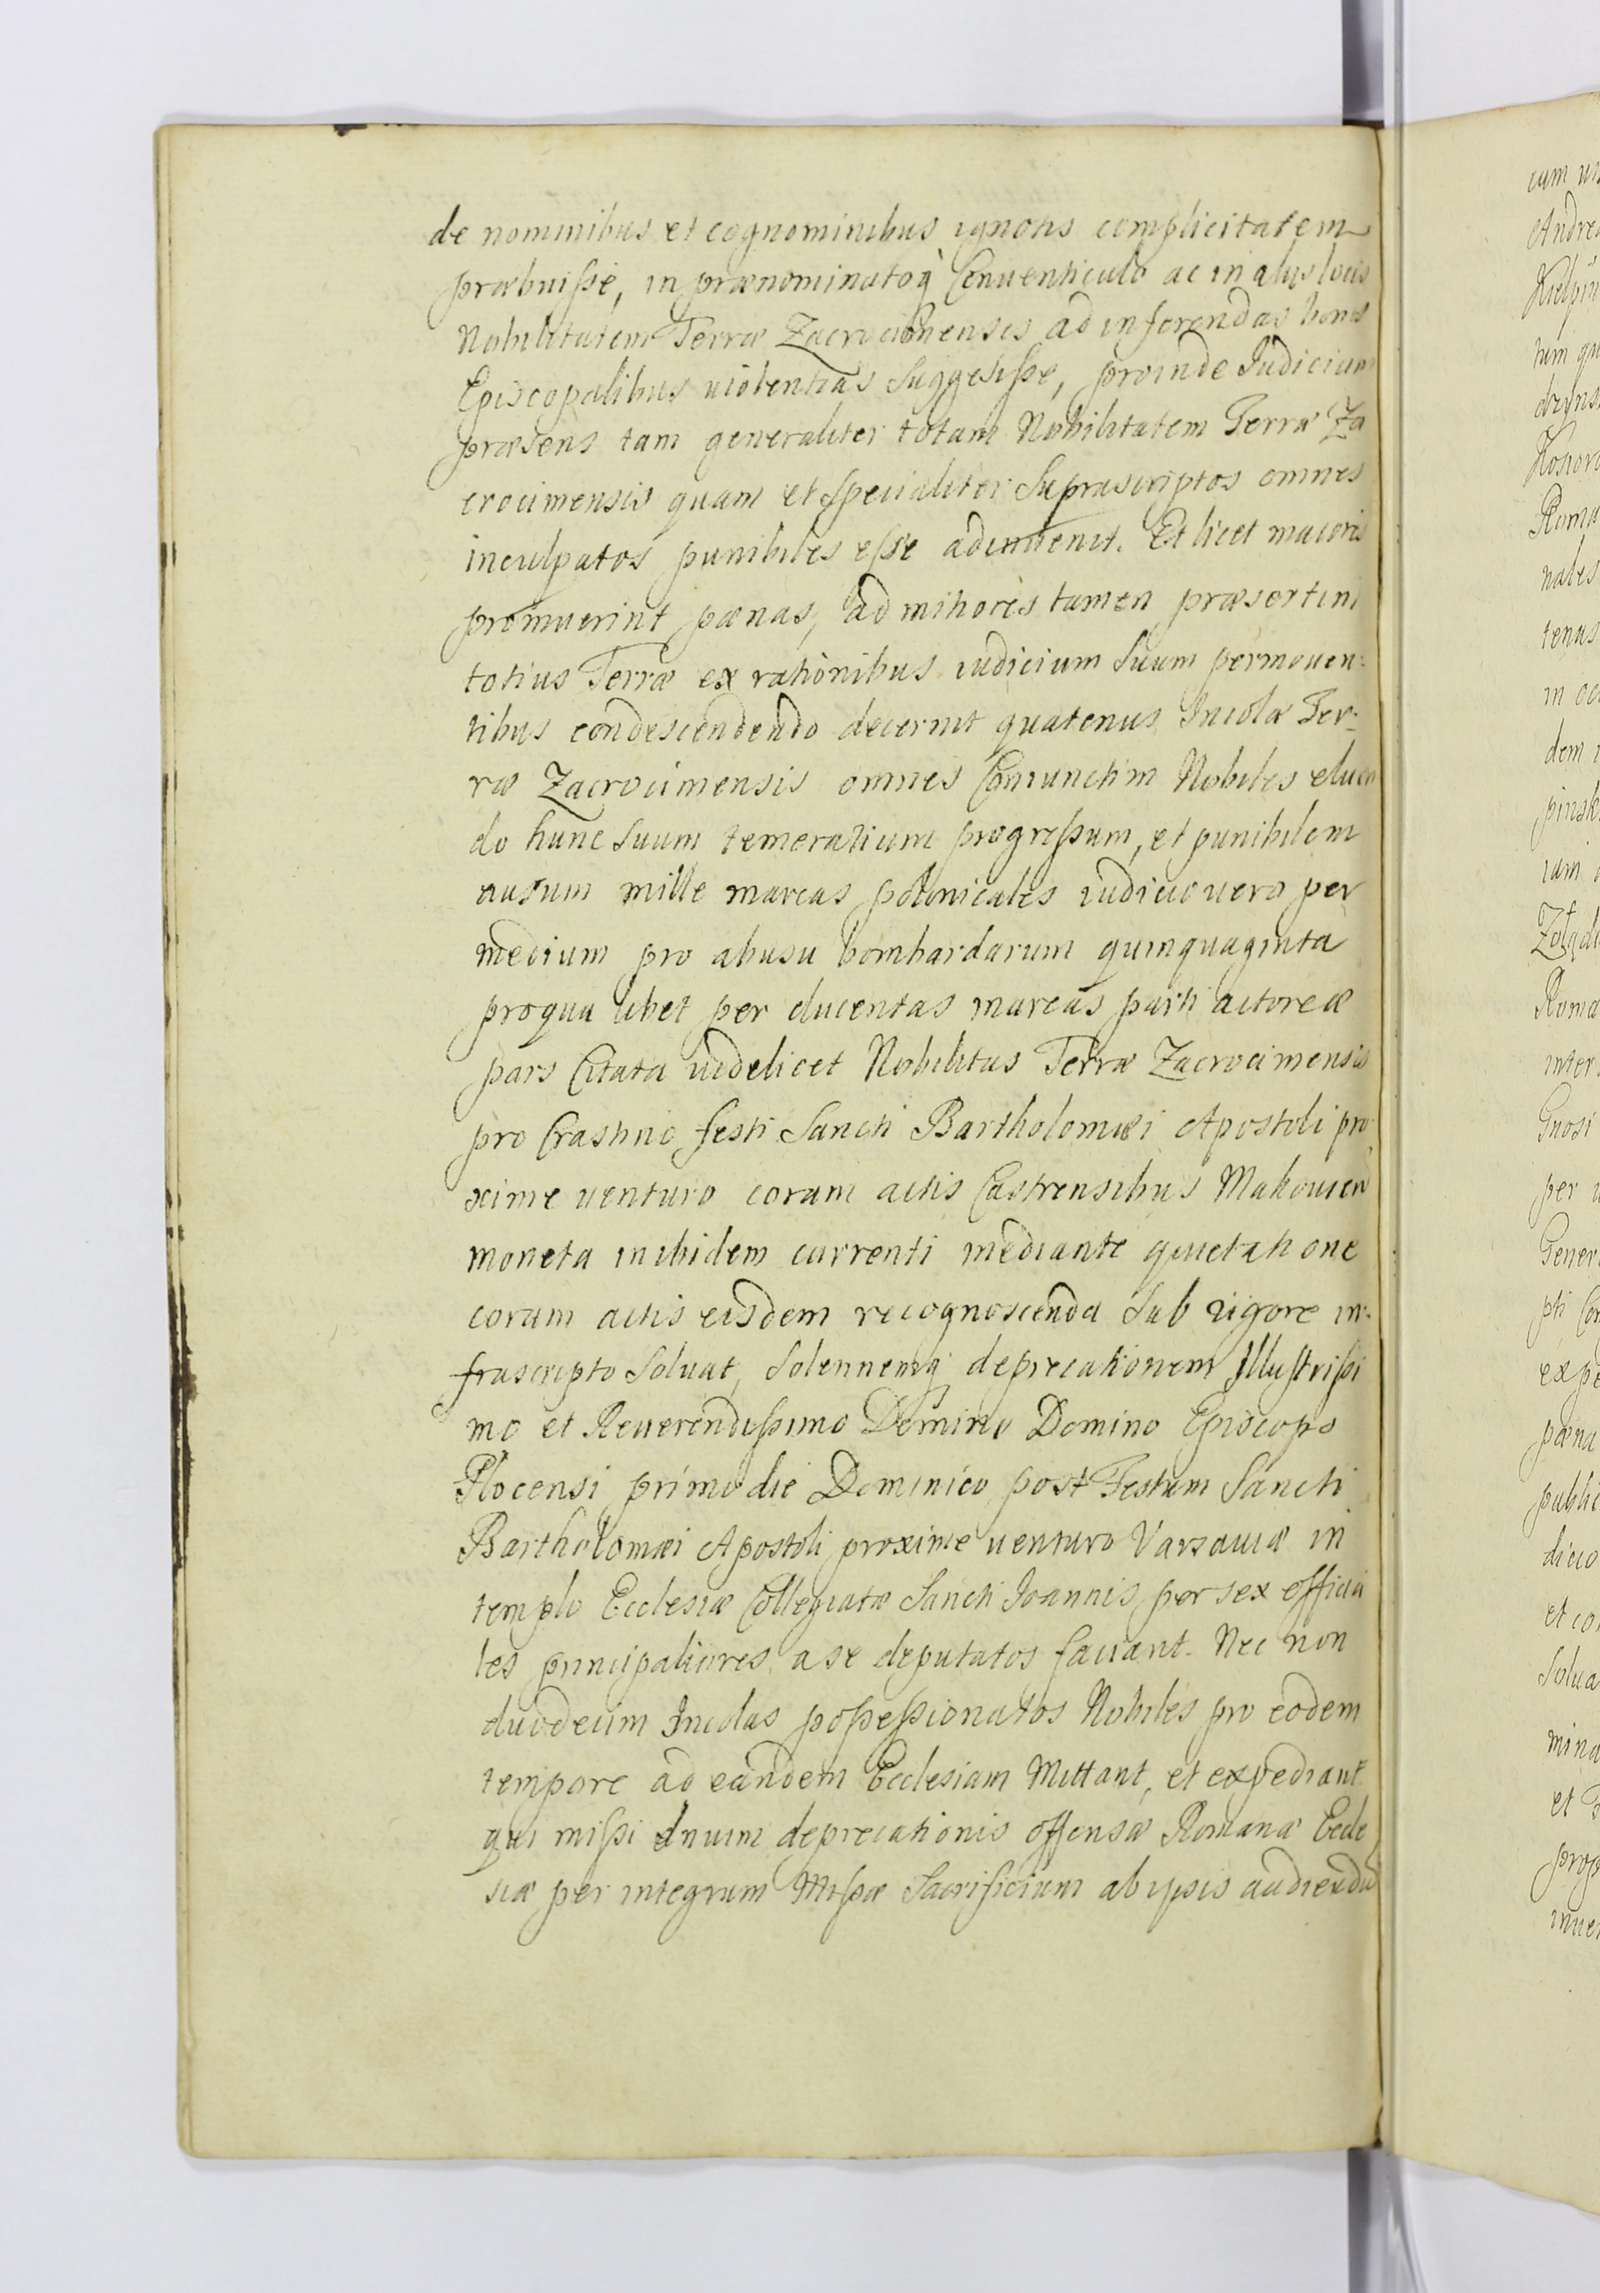 de nominibus et cognominibus ignotis complicitatem
præbuisse, in prænominatoq; Conuenticulo ac in alijs locis
Nobilitatem Terræ Zacrocimensis ad inferendas bonis
Episcopalibus uiolentias suggesisse, proinde Iudicium
præsens tam generaliter totam Nobilitatem Terræ Za
crocimensis quam et specialiter suprascriptos omnes
inculpatos punibiles esse adinuenit. Et licet maioris
promuerint pænas, ad minoris tamen præsertim
totius Terræ ex rationibus iudicium suum permouen:
tibus condescendendo decernit quatenus Incolæ Ter:
ræ Zacrocimensis omnes Coniunctim Nobiles eluen
do hunc suum temerarium progressum, et punibilem
ausum mille marcas polonicales iudicio uero per
medium pro abusu bombardarum quinquaginta
proqua libet per ducentas marcas parti actoreæ
pars Citata uidelicet Nobilitas Terræ Zacrocimensis
pro Crastino festi Sancti Bartholomæi Apostoli pro
xime uenturo coram actis Castrensibus Makouien
moneta inibidem currenti mediante quietatione
coram actis eisdem recognoscenda sub rigore in:
frascripto soluat, solennemq; deprecationem Illustrissi
mo et Reuerendissimo Domino Domino Episcopo
Plocensi primo die Dominico post Festum Sancti
Bartholomæi Apostoli proxime uenturo Varsauiæ in
templo Ecclesiæ Collegiatæ Sancti Ioannis per sex officia
les principaliores a se deputatos faciant. Nec non
duodecim Incolas possessionatos Nobiles pro eodem
tempore ad eandem Ecclesiam Mittant, et expediant
qui missi deprecationis offensæ Romanæ Eccle
siæ per integrum Missæ Sacrificium ab ipsis audiendu
cum
dem
per
et